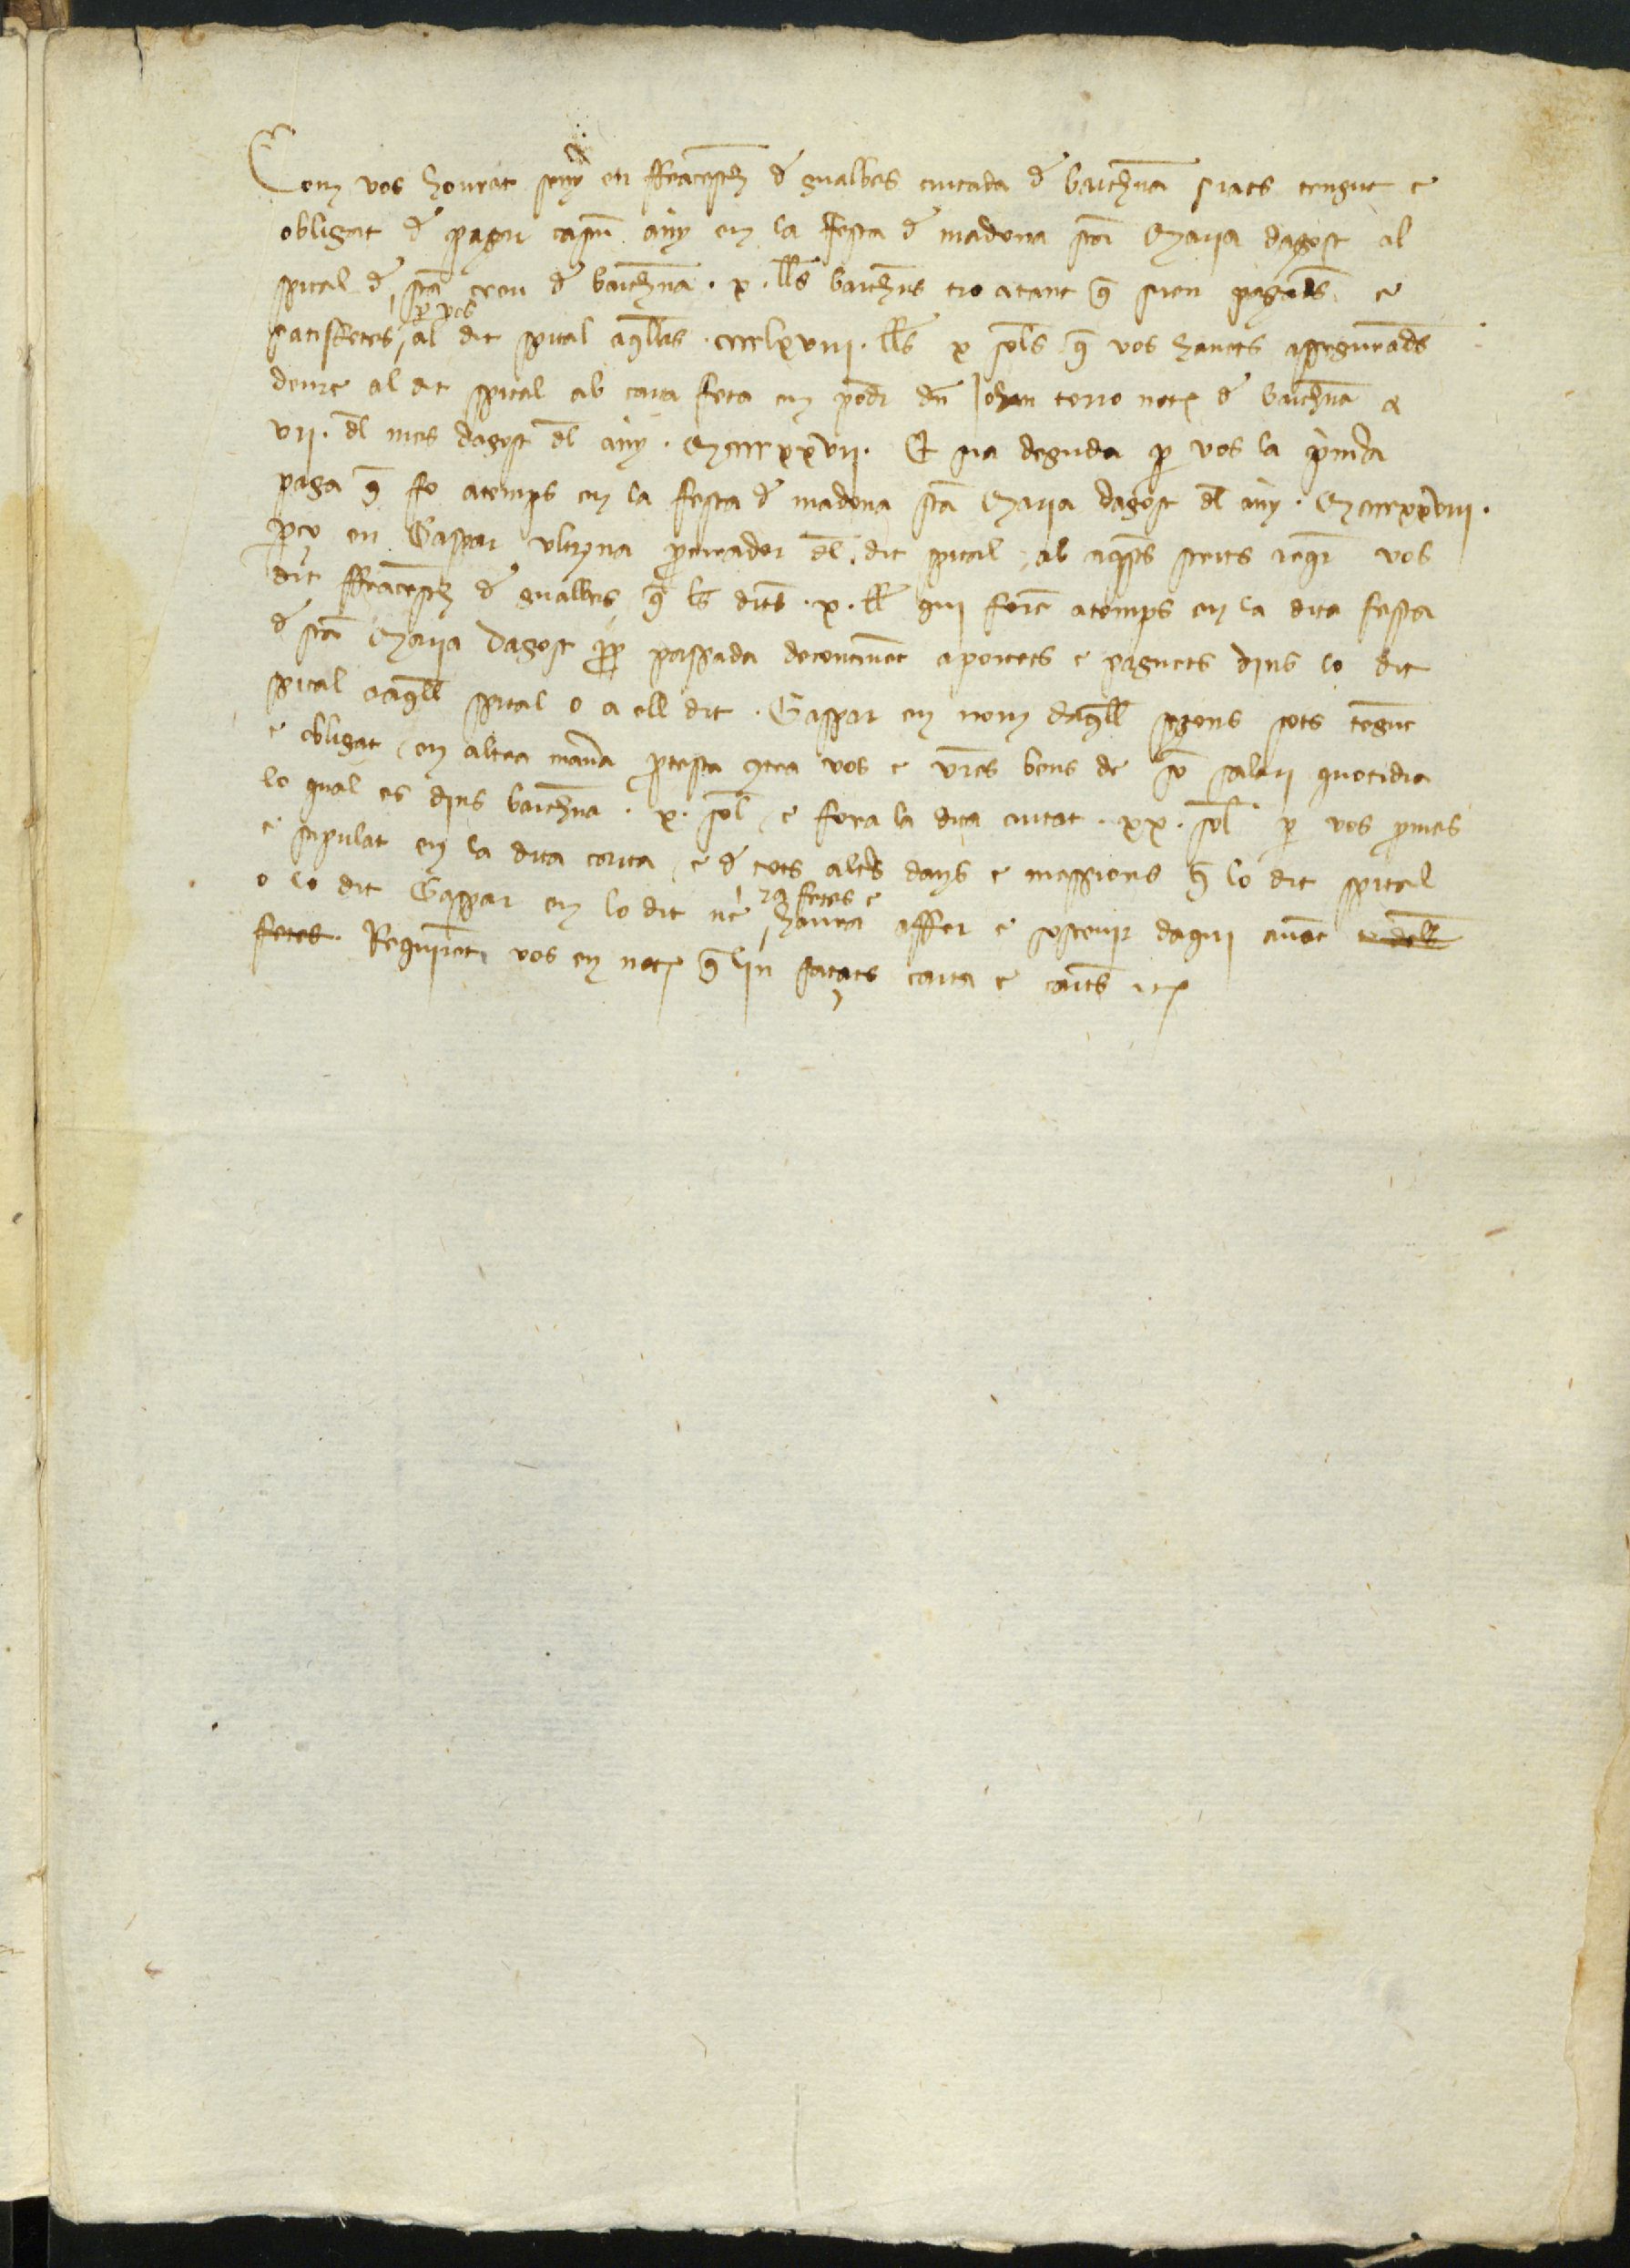 Com vos honrat seny en ffrancesch de gualbes ciutada de barchna siats tengut e
obligat de pagar cascun any en la festa de madona sta Maria dagost al
spital de sta creu de barchna . x . lls barchns tro atant q sien pagads e
satisfetes per vos al dit spital aqlles . cccclxviii . lls x sols q vos havets assegurads
deure al dit spital ab carta feta en poder den Johan torro not de barchna a
vii . del mes dagost del any . Mccccxxvii . Et sia deguda per vos la primera
paga q fo atemps en la festa de madona sta Maria dagost del any . Mccccxxviii .
perço en Gaspar ulzina procurador del dit spital ab aqsts scrits reqr vos
dit ffrancesch de gualbes q les dits . x . ll qui foren atemps en la dita festa
de sta Maria dagost pp passada decontinent aportets e paguets dins lo dit
spital a aqll spital o a ell dit . Gaspar en nom daqll segons sots tengut
e obligat en altra manera protesta contra vos e vres bens de son salari quotidia
lo qual es dins barchna . x . sol e fora la dita ciutat . xx . sol per vos promes
e stipulat en la dita carta e de tots altres danys e messions q lo dit spital
o lo dit Gaspar en lo dit ne ja fetes e haura affer e sostenir daqui avant
fetes . Requirent vos en not q lin façats carta e cartes etc